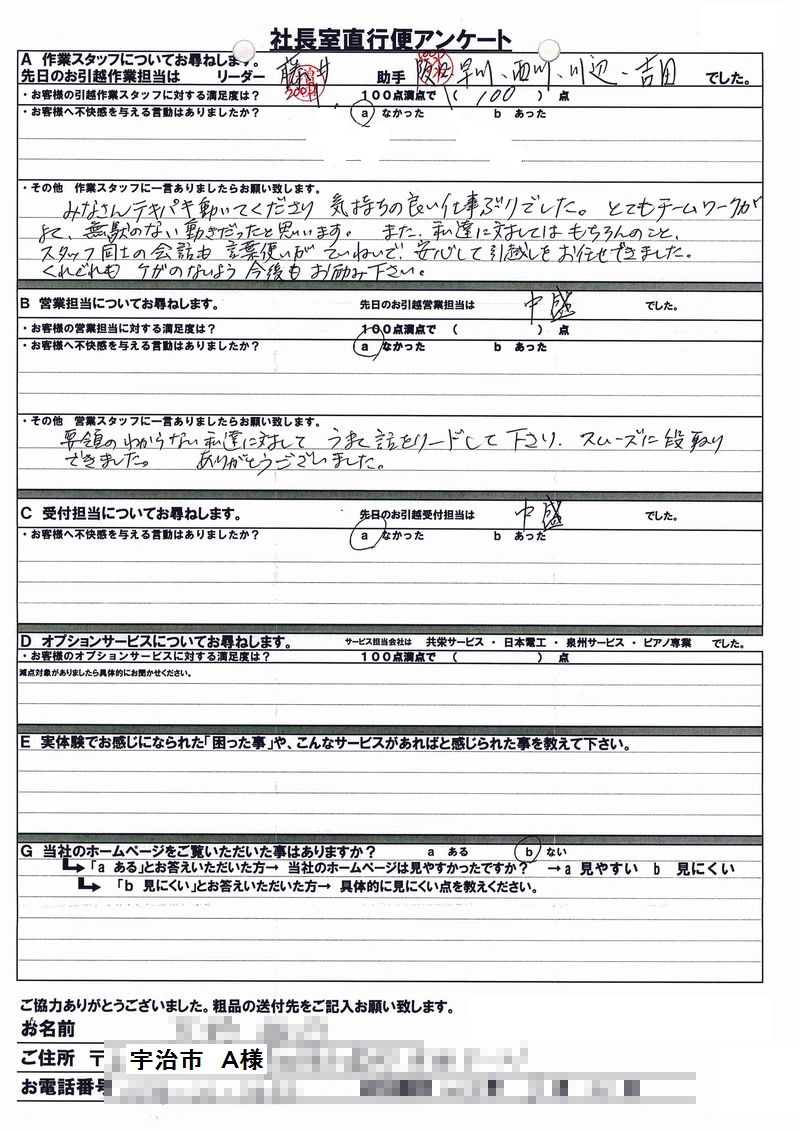 社長室直行便アンケート
A 作業スタッフについてお尋ねします。
先日のお引越作業担当は リーダー 藤井 助手 早川、西川、川辺、吉田 でした。
・お客様の引越作業スタッフに対する満足度は? 100点満点で ( 100 ) 点
・お客様へ不快感を与える言動はありましたか? a なかった b あった
・その他 作業スタッフに一言ありましたらお願い致します。
みなさんテキパキ動いてくださり 気持ちの良い仕事ぶりでした。 とてもチームワークが
よく、無駄のない動きだったと思います。 また、私達に対してはもちろんのこと、
スタッフ同士の会話も 言葉使いが ていねいで、安心して引越しをお任せできました。
くれぐれも ケガのなしよう 今後も お励み下さい。
B 営業担当についてお尋ねします。 先日のお引越営業担当は 中盛 でした。
・お客様の営業担当に対する満足度は? 100点満点で ( ) 点
・お客様へ不快感を与える言動はありましたか? a なかった b あった
・その他 営業スタッフに一言ありましたらお願い致します。
要領のわからない私達に対して うまく話をリードして下さり、スムーズに段取り
できました。 ありがとうございました。
C 受付担当についてお尋ねします。 先日のお引越受付担当は 中盛 でした。
・お客様へ不快感を与える言動はありましたか? a なかった b あった
D オプションサービスについてお尋ねします。 サービス担当会社は 共栄サービス ・ 日本電工 ・ 泉州サービス ・ ピアノ専業 でした。
・お客様のオプションサービスに対する満足度は? 100点満点で ( ) 点
減点対象がありましたら具体的にお聞かせください。
E 実体験でお感じになられた「困った事」や、こんなサービスがあればと感じられた事を教えて下さい。
G 当社のホームページをご覧いただいた事はありますか? a ある b ない
「a ある」とお答えいただいた方→ 当社のホームページは見やすかったですか? →a 見やすい b 見にくい
「b 見にくい」とお答えいただいた方→ 具体的に見にくい点を教えください。
ご協力ありがとうございました。粗品の送付先をご記入お願い致します。
お名前
ご住所 〒 宇治市 A様
お電話番号